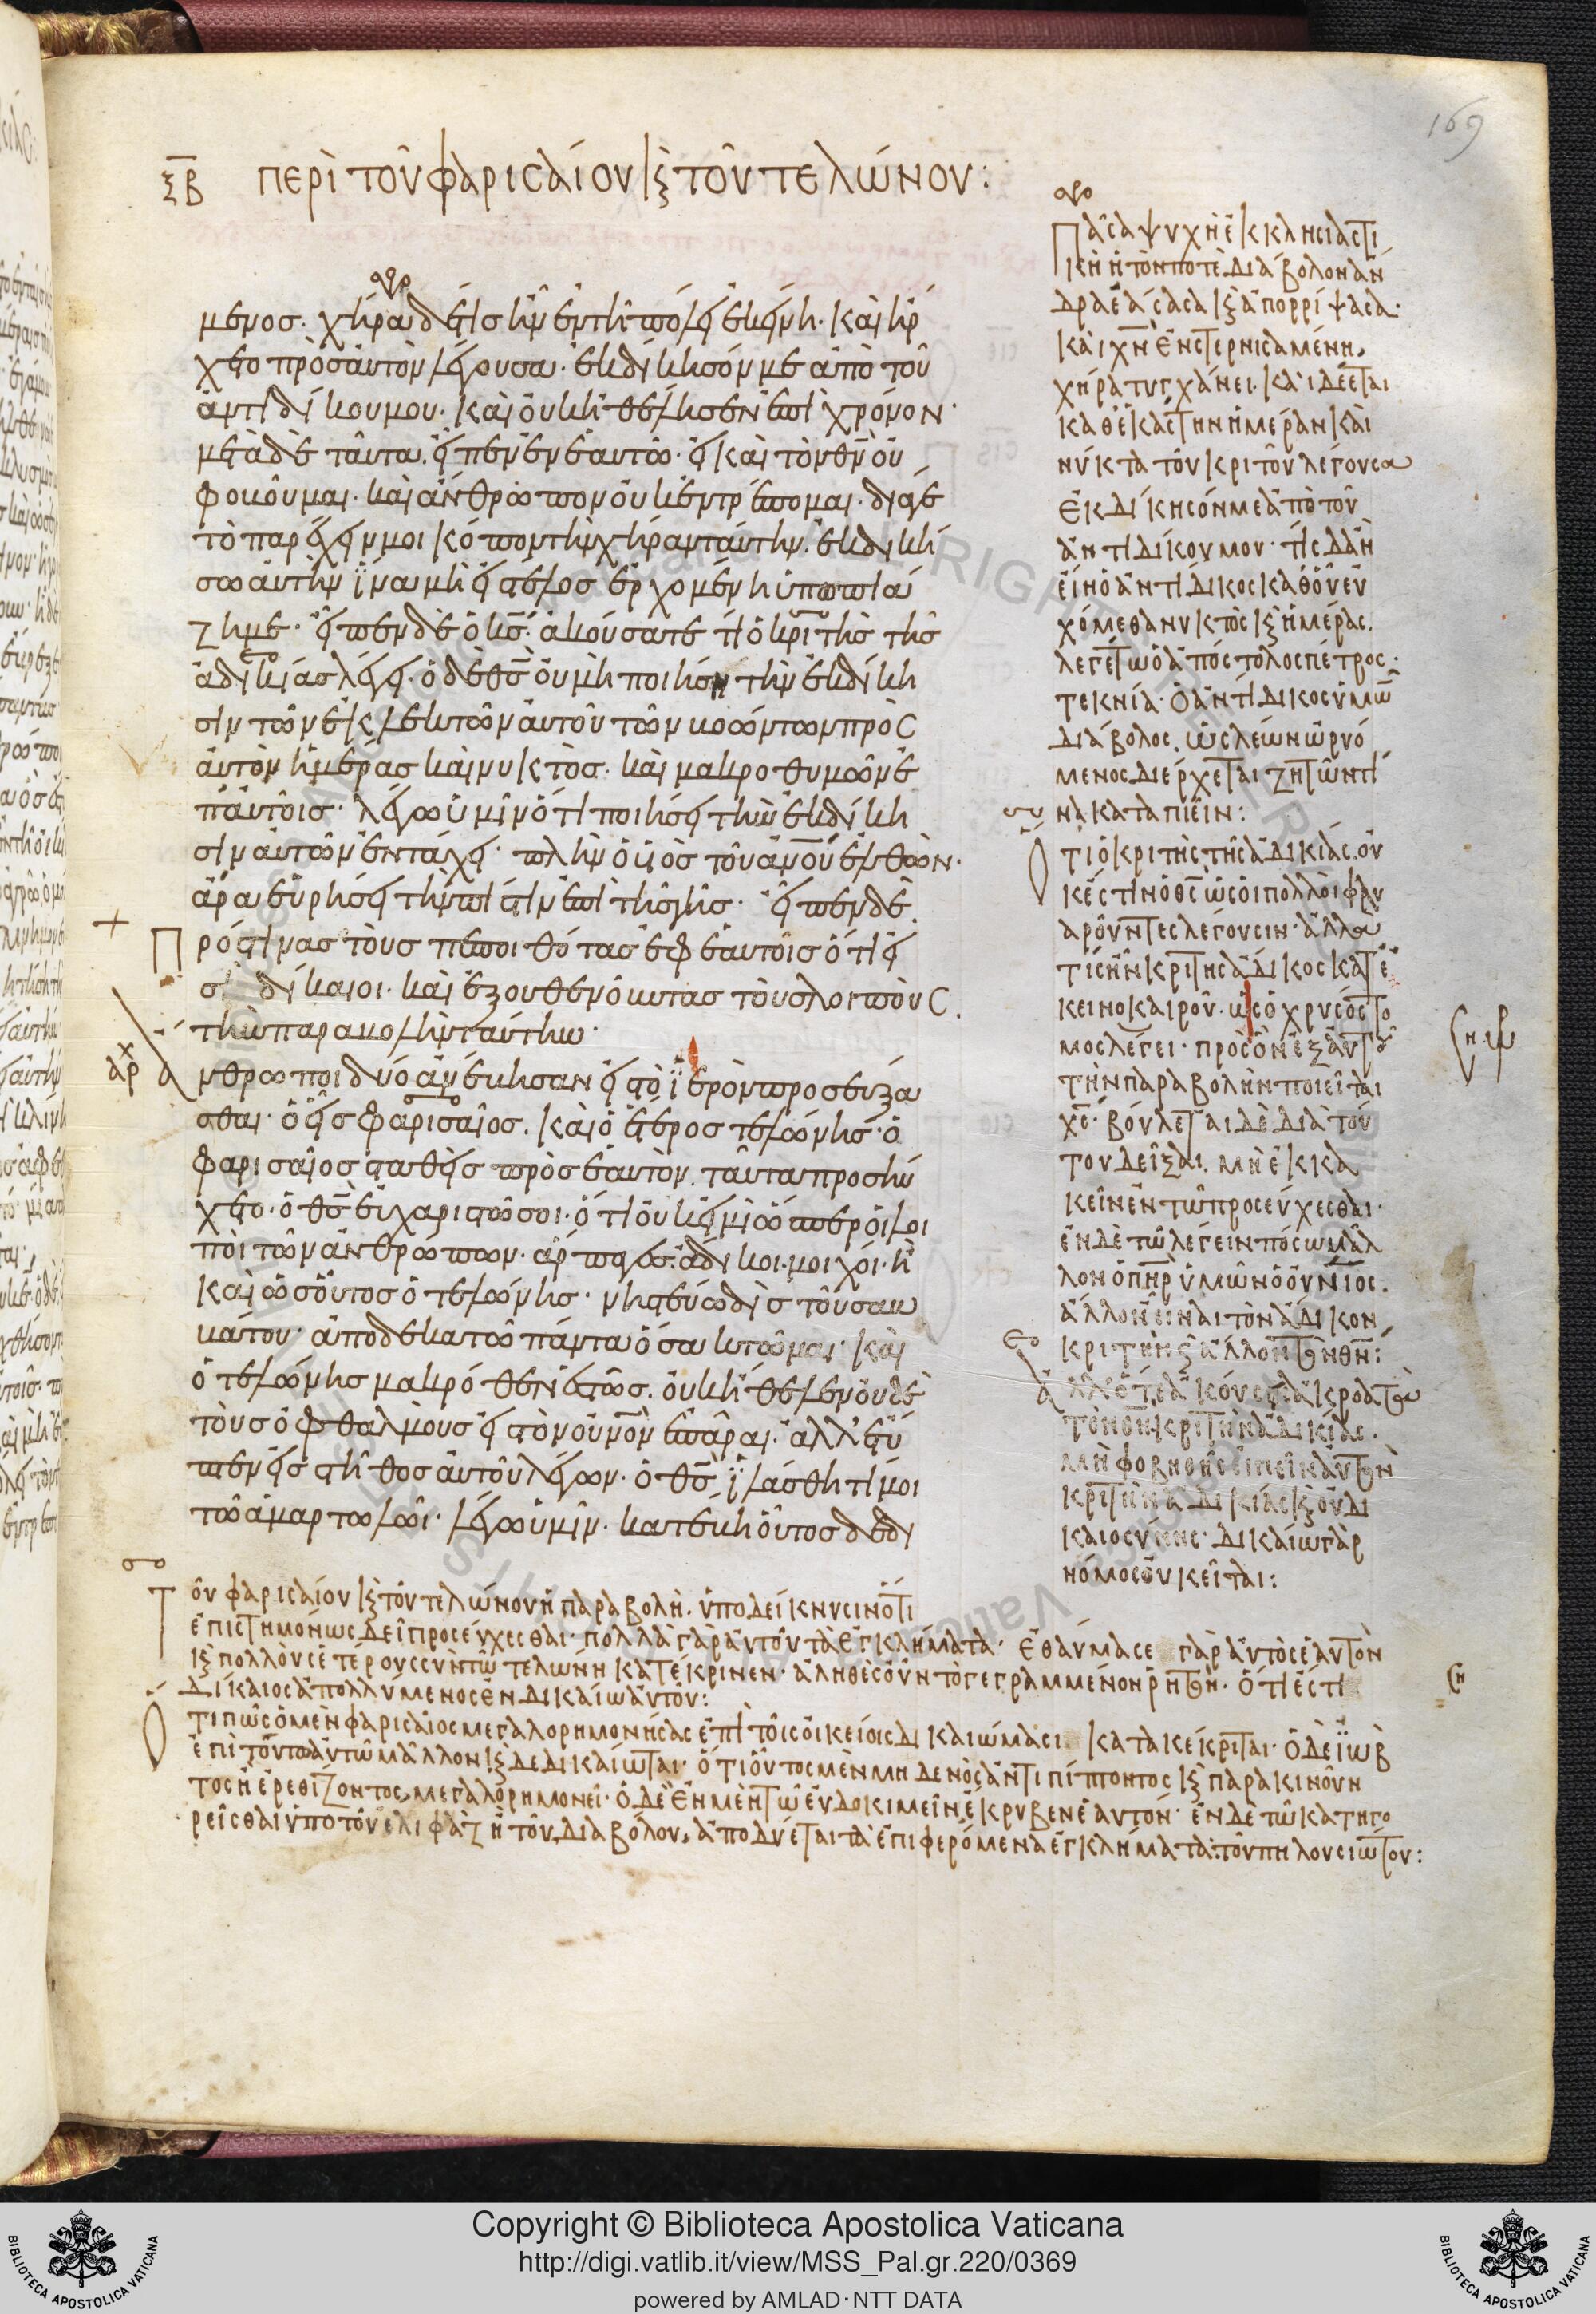 169
ξβ περὶ τοῦ φαρισαίου κ τοῦ τελώνου:
μενος. χήρα δέ τις ἦν ἐν τῆ πόλει ἐκείνη. καὶ ἤρ
χετο πρὸς αὐτὸν λέγουσα. ἐκδίκησόν με ἀπὸ τοῦ
ἀντιδίκου μου. καὶ οὐκ ἤθέλησεν ἐπὶ χρόνον·
μετὰ δὲ ταῦτα. εἶπεν ἐν ἑαυτῶ. εἰ καὶ τὸν θν οὐ
φοβοῦμαι. καὶ ἄνθρωπον οὐκ ἐντρέπομαι. διά γε
τὸ παρέχειν μοι κόπον τὴν χήραν ταύτην. ἐκδική
σω αὐτὴν ἵνα μὴ εἰς τέλος ἐρχομένη ὑπωπιά
ζη με. εἶπεν δὲ ὁ κς. ἀκούσατε τί ὁ κριτὴς τῆς
ἀδικίας λέγει. ὁ δὲ θς οὐ μὴ ποιήση τὴν ἐκδίκη
σιν τῶν ἐκλεκτῶν αὐτοῦ τῶν βοώντων πρὸς
αὐτὸν ἡμέρας καὶ νυκτός. καὶ μακροθυμῶν ἐ
π αὐτοῖς. λέγω ὑμῖν ὅτι ποιήσει τὴν ἐκδίκη
σιν αὐτῶν ἐν τάχει. πλὴν ὁ υἱὸς τοῦ ἀνου ἐλθὼν.
ἆρα εὑρήσει τὴν πίστιν ἐπὶ τῆς γῆς. εἶπεν δὲ
Πρός τινας τοὺς πεποιθότας ἐφ ἑαυτοῖς ὅτι εἰ
σὶ δίκαιοι. καὶ ἐξουθενοῦντας τοὺς λοιποὺς.
τὴν παραβολὴν ταύτην·
ἀρχ Ἄνθρωποι δύο ἀνέβησαν εἰς τὸ ἱερὸν προσεύξα
σθαι. ὁ εἷς φαρισαῖος. καὶ ὁ ἕτερος τελώνης. ὁ
φαρισαῖος σταθεὶς πρὸς ἑαυτὸν. ταῦτα προσηύ
χετο. ὁ θς εὐχαριστῶ σοι. ὅτι οὐκ εἰμὶ ὥσπερ οἱ λοι
ποὶ τῶν ἀνθρώπων. ἅρπαγες. ἄδικοι. μοιχοί. ἢ
καὶ ὡς οὗτος ὁ τελώνης. νηστεύω δὶς τοῦ σαβ
βάτου. ἀποδεκατῶ πάντα ὅσα κτῶμαι. καὶ
ὁ τελώνης μακρόθεν ἑστὼς. οὐκ ἤθελεν οὐδὲ
τοὺς ὀφθαλμοὺς εἰς τὸν οὐνὸν ἐπᾶραι. ἀλλ' ἔτυ
πτεν εἰς στῆθος αὐτοῦ λέγων. ὁ θς, ἱλάσθητί μοι
τῶ ἁμαρτωλῶι. λέγω ὑμῖν. κατέβη οὗτος δεδι
Πᾶσα ψυχὴ ἐκκλησιαστι
κὴ ἡ τόν ποτε διάβολον ἄν
δρα ἐάσασα κ ἀπορρίψασα.
καὶ χν ἐνστερνισαμένη,
χήρα τυγχάνει. καὶ δέεται
καθ ἑκάστην ἡμέραν καὶ
νύκτα τοῦ κριτοῦ λέγουσα
ἐκδίκησόν με ἀπὸ τοῦ
ἀντιδίκου μου. τίς δ ἂν
εἴη ὁ ἀντίδικος καθ οὗ εὐ
χόμεθα νυκτὸς κ ἡμέρας.
λεγέτω ὁ ἀπόστολος πέτρος.
τεκνία. ὁ ἀντίδικος ὑμῶν
διάβολος. ὡς λέων ὠρυό
μενος διέρχεται ζητῶν τί
να καταπιεῖν:
Ὅτι ὁ κριτὴς τῆς ἀδικίας. οὐ
κ ἔστιν ὁ θς ὡς οἱ πολλοὶ φλυ
αροῦντες λέγουσιν. ἀλλά
τις ἦν κριτὴς ἄδικος κατ ἐ
κεῖνο καιροῦ. ὡς ὁ χρυσόστο
μος λέγει. πρὸς ὃν ἐξ αὐτοῦ
τὴν παραβολὴν ποιεῖται
χς. βούλεται δὲ διὰ τού
του δεῖξαι. μὴ ἐκκα
κεῖν ἐν τῶ προσεύχεσθαι.
ἐν δὲ τῶ λέγειν πόσω μᾶλ
λον ὁ πηρ ὑμῶν ὁ οὐνιος.
ἄλλον εἶναι τὸν ἄδικον
κριτὴν κ ἄλλον τὸν θν:
κριτὴν ἀδικίας κ οὐ δι
καιοσύνης. δικαίω γὰρ
νόμος οὐ κεῖται:
Τοῦ φαρισαίου κ τοῦ τελώνου ἡ παραβολὴ. ὑποδείκνυσιν ὅτι
ἐπιστημόνως δεῖ προσεύχεσθαι. πολλὰ γὰρ αὐτοῦ τὰ ἐγκλήματα. ἐθαύμασε γὰρ αὐτὸς ἑαυτὸν
κ πολλοὺς ἑτέρους σὺν τῶ τελώνη κατέκρινεν. ἀληθὲς οὖν τὸ γεγραμμένον ῥητὸν. ὅτι ἐστὶ
δίκαιος ἀπολλύμενος ἐν δικαίω αὐτοῦ:
Ὅτι πῶς ὁ μὲν φαρισαῖος μεγαλορημονήσας ἐπὶ τοῖς οἰκείοις δικαιώμασι κατακέκριται. ὁ δὲ ἰὼβ
ἐπὶ τούτω αὐτῶ μᾶλλον κ δεδικαίωται. ὅτι οὗτος μὲν μηδενὸς ἀντιπίπτοντος κ παρακινοῦν
τος ἢ ἐρεθίζοντος, μεγαλορημονεῖ. ὁ δὲ ἐν μὲν τῶ εὐδοκιμεῖν ἔκρυβεν ἑαυτόν. ἐν δὲ τῶ κατηγο
ρεῖσθαι ὑπὸ τοῦ ἐλιφὰζ ἢ τοῦ διαβόλου, ἀποδύεται τὰ ἐπιφερόμενα ἐγκλήματα: τοῦ πηλουσιώτου:
Copyright © Biblioteca Apostolica Vaticana
http://digi.vatlib.it/view/MSS_Pal.gr.220/0369
powered by AMLAD·NTT DATA
BIBLIOTECA APOSTOLICA VATICANA
BIBLIOTECA APOSTOLICA VATICANA